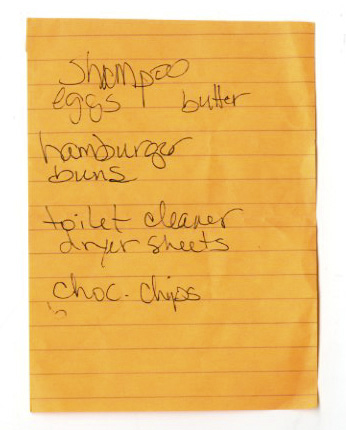 shampoo
eggs butter
hamburger
buns
toilet cleaner
dryer sheets
choc. chips